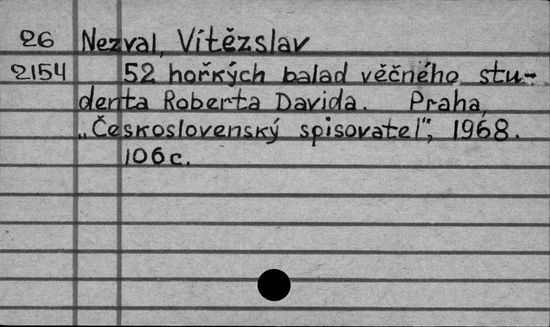 26 Nezval, Vítězslav
2154 52 hořkých balad věčného stu-
denta Roberta Davida. Praha,
„Československý spisovatel", 1968.
106 c.